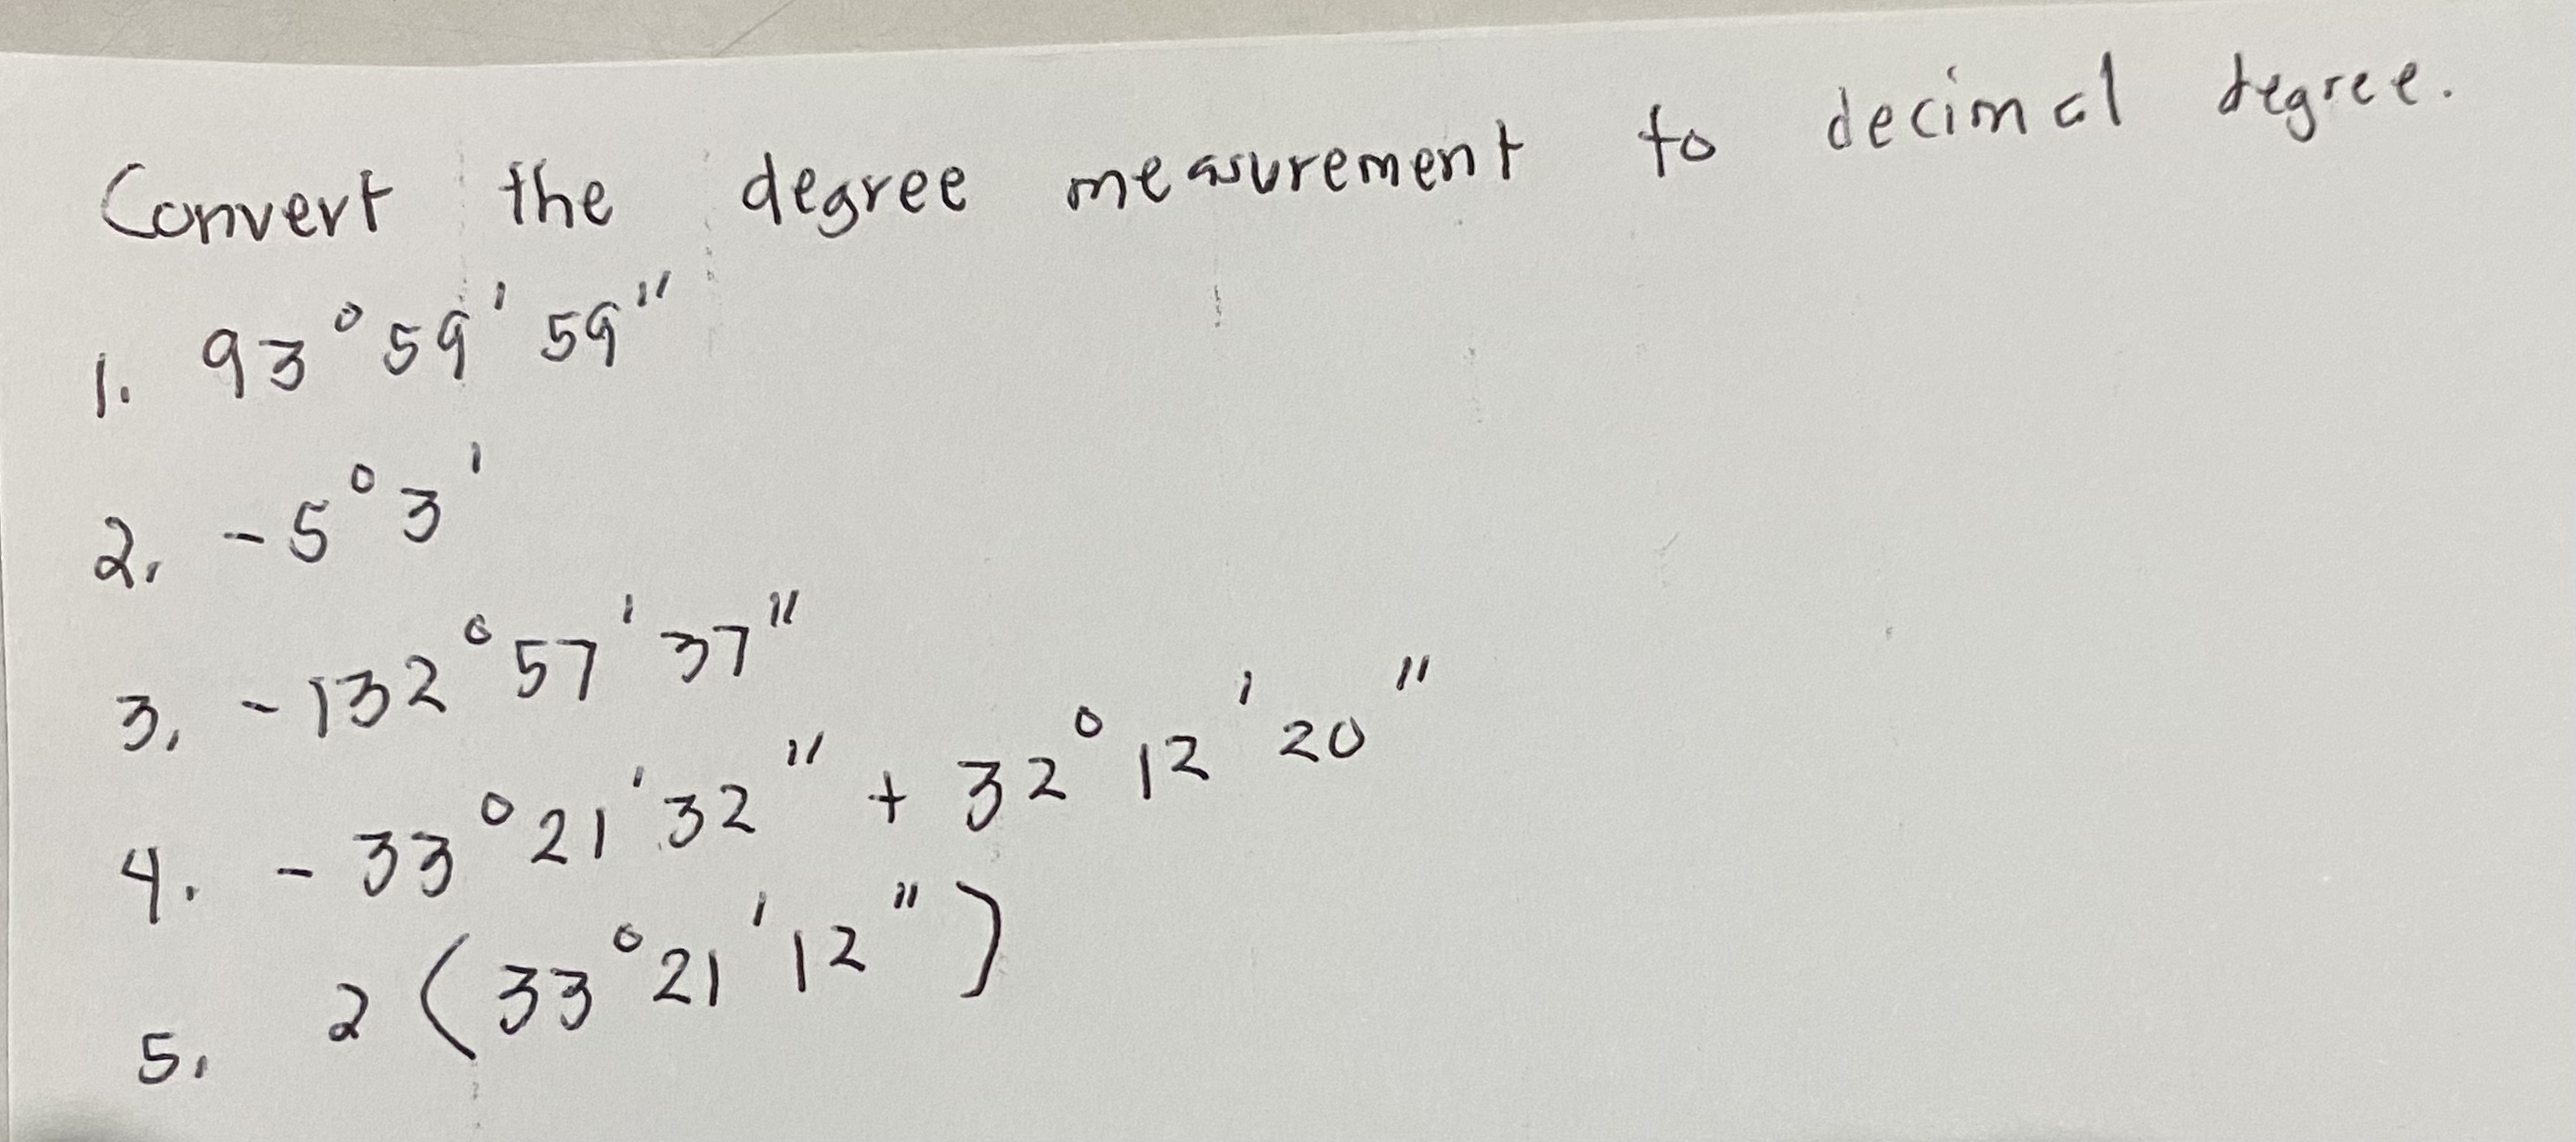 Convert the degree measurement to decimal degree.
1. 93° 59' 59"
2. -5° 3'
3. -132° 57' 37"
4. -33° 21' 32" + 32° 12' 20"
5. 2 (33° 21' 12")